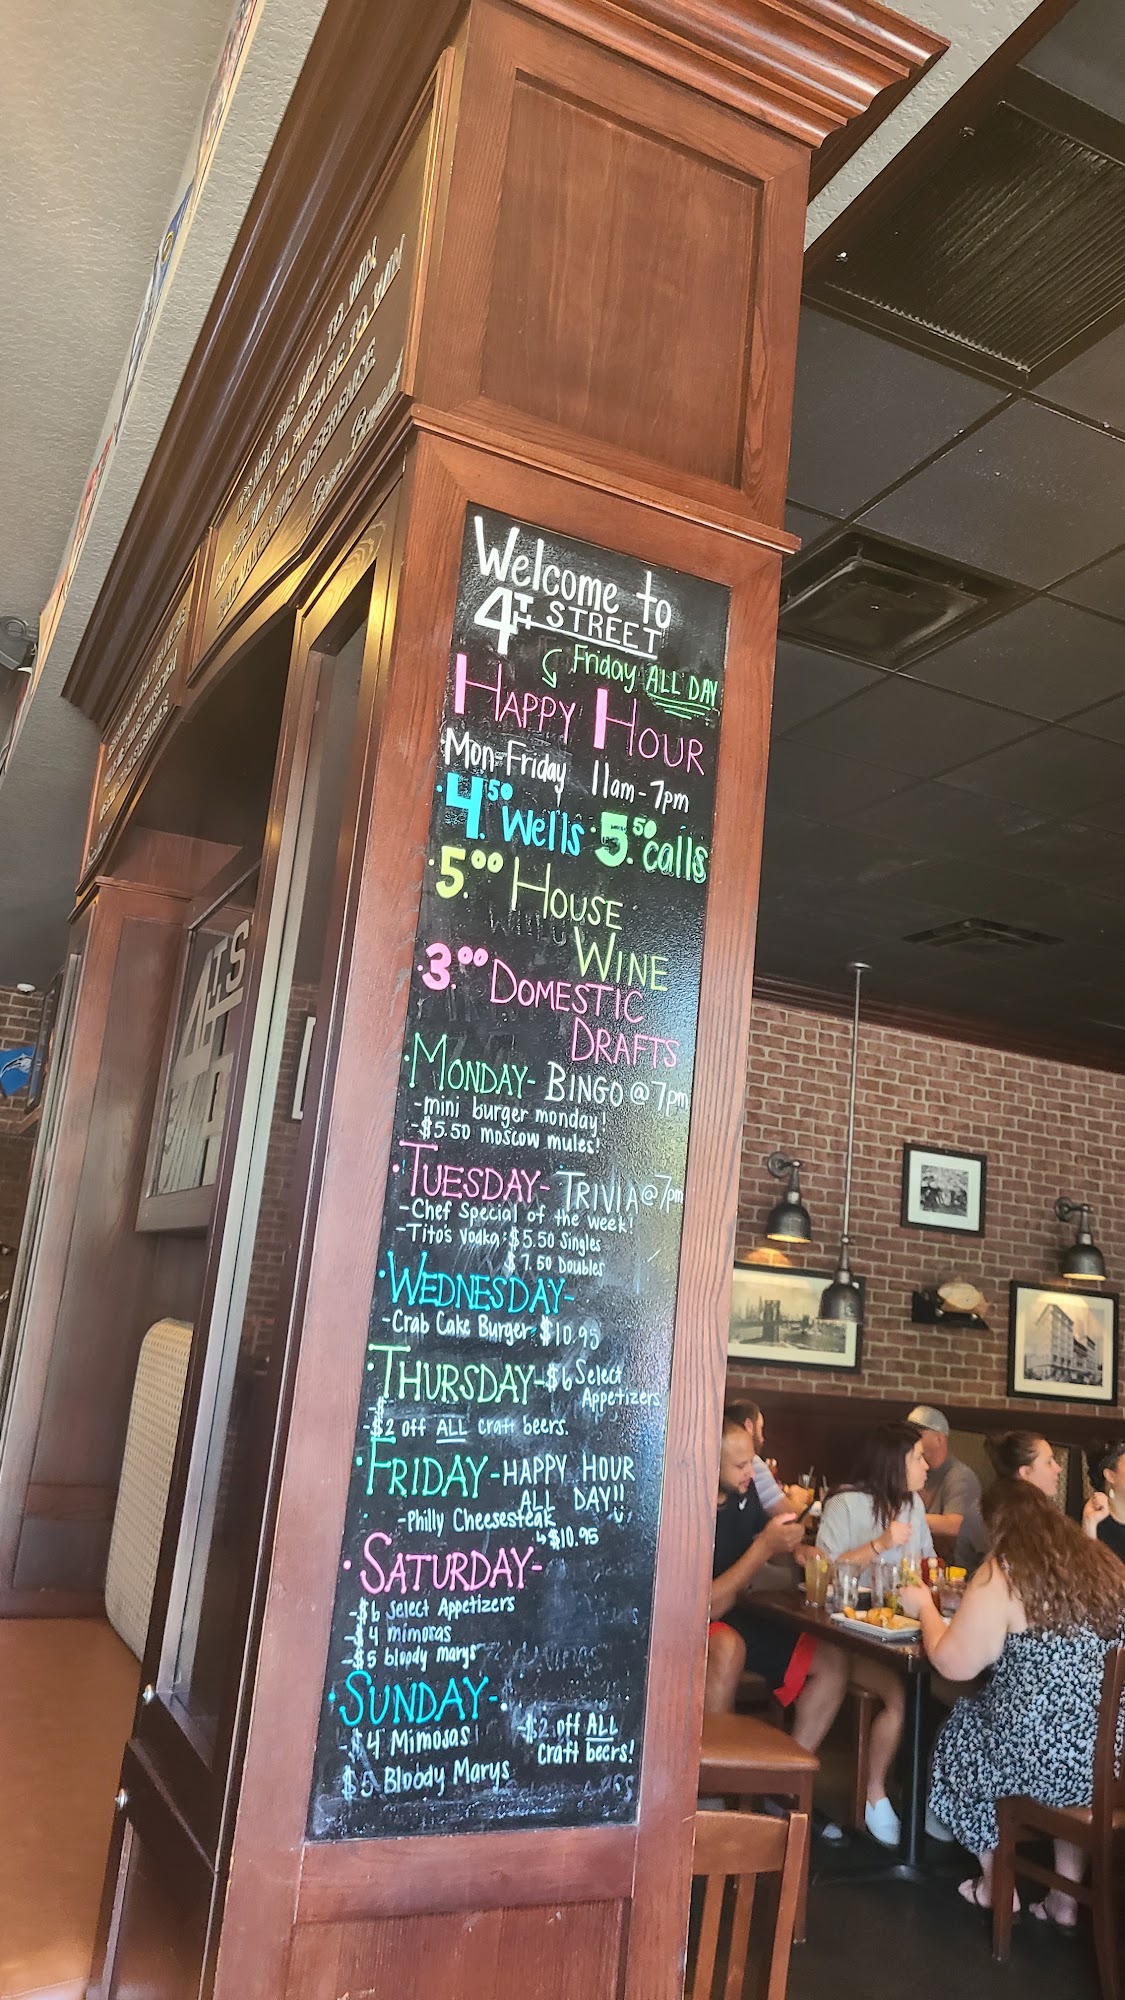 Welcome to
4TH STREET
Friday ALL DAY
HAPPY HOUR
Mon-Friday 11am-7pm
·4.50 Wells ·5.50 calls
·5.00 HOUSE
WINE
·3.00 DOMESTIC
DRAFTS
·MONDAY- BINGO @ 7pm
-mini burger monday!
-$5.50 moscow mules!
·TUESDAY- TRIVIA @ 7pm
-Chef Special of the week!
-Tito's Vodka: $5.50 Singles
$7.50 Doubles
·WEDNESDAY-
-Crab Cake Burger $10.95
·THURSDAY-$6 Select
Appetizers
-$2 off ALL craft beers.
·FRIDAY-HAPPY HOUR
ALL DAY!!
-Philly Cheesesteak
↳$10.95
·SATURDAY-
-$6 Select Appetizers
-$4 mimosas
-$5 bloody marys
·SUNDAY-
-$4 Mimosas
-$2 off ALL
craft beers!
$5 Bloody Marys
WILL TO WIN
TO PREPARE TO WIN
DIFFERENCE
4THS